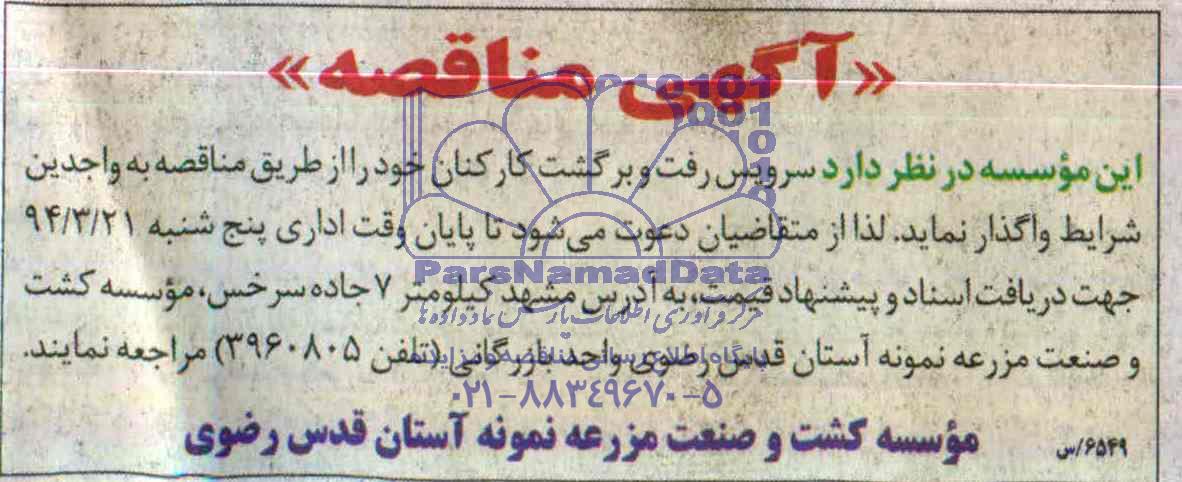 «آگهی مناقصه»
این مؤسسه در نظر دارد سرویس رفت و برگشت کارکنان خود را از طریق مناقصه به واجدین
شرایط واگذار نماید. لذا از متقاضیان دعوت می‌شود تا پایان وقت اداری پنج شنبه ۹۴/۳/۲۱
جهت دریافت اسناد و پیشنهاد قیمت، به آدرس مشهد کیلومتر ۷ جاده سرخس، مؤسسه کشت
و صنعت مزرعه نمونه آستان قدس رضوی واحد بازرگانی (تلفن ۳۹۶۰۸۰۵) مراجعه نمایند.
مؤسسه کشت و صنعت مزرعه نمونه آستان قدس رضوی
۶۵۴۹/س
ParsNamadData
مرکز فرآوری اطلاعات پارس نماد داده ها
پایگاه اطلاع رسانی مناقصه و مزایده
۰۲۱-۸۸۳۴۹۶۷۰-۵